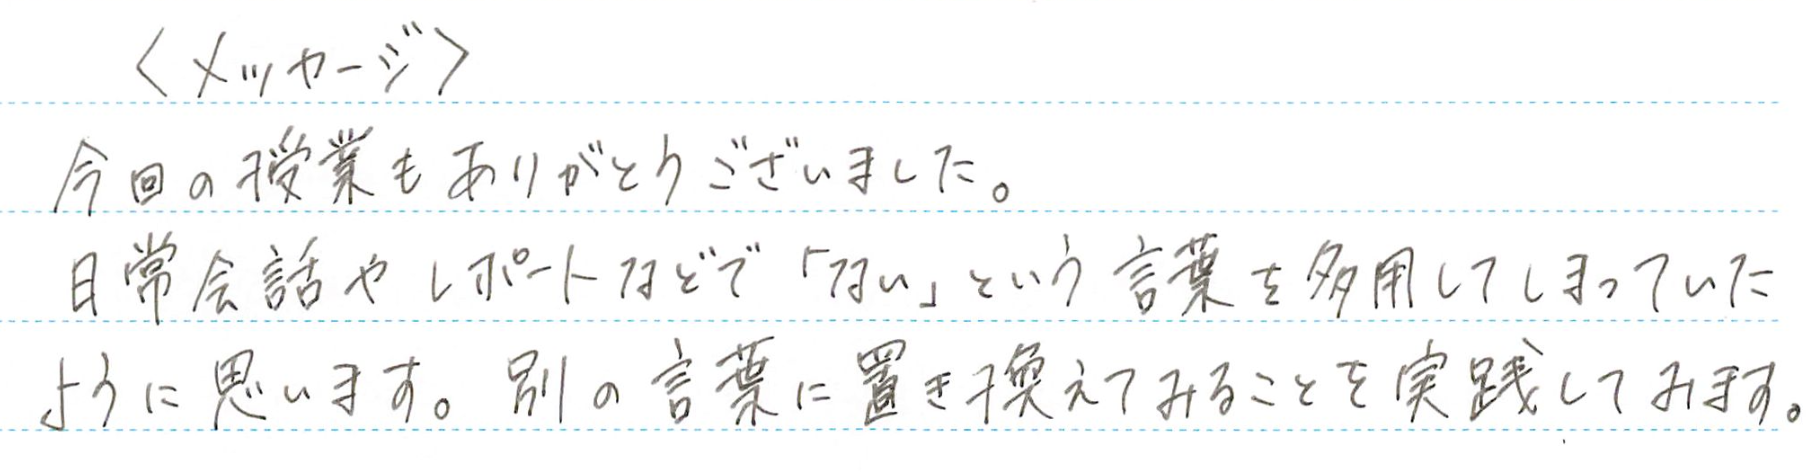 〈メッセージ〉
今回の授業もありがとうございました。
日常会話やレポートなどで「ない」という言葉を多用してしまっていた
ように思います。別の言葉に置き換えてみることを実践してみます。